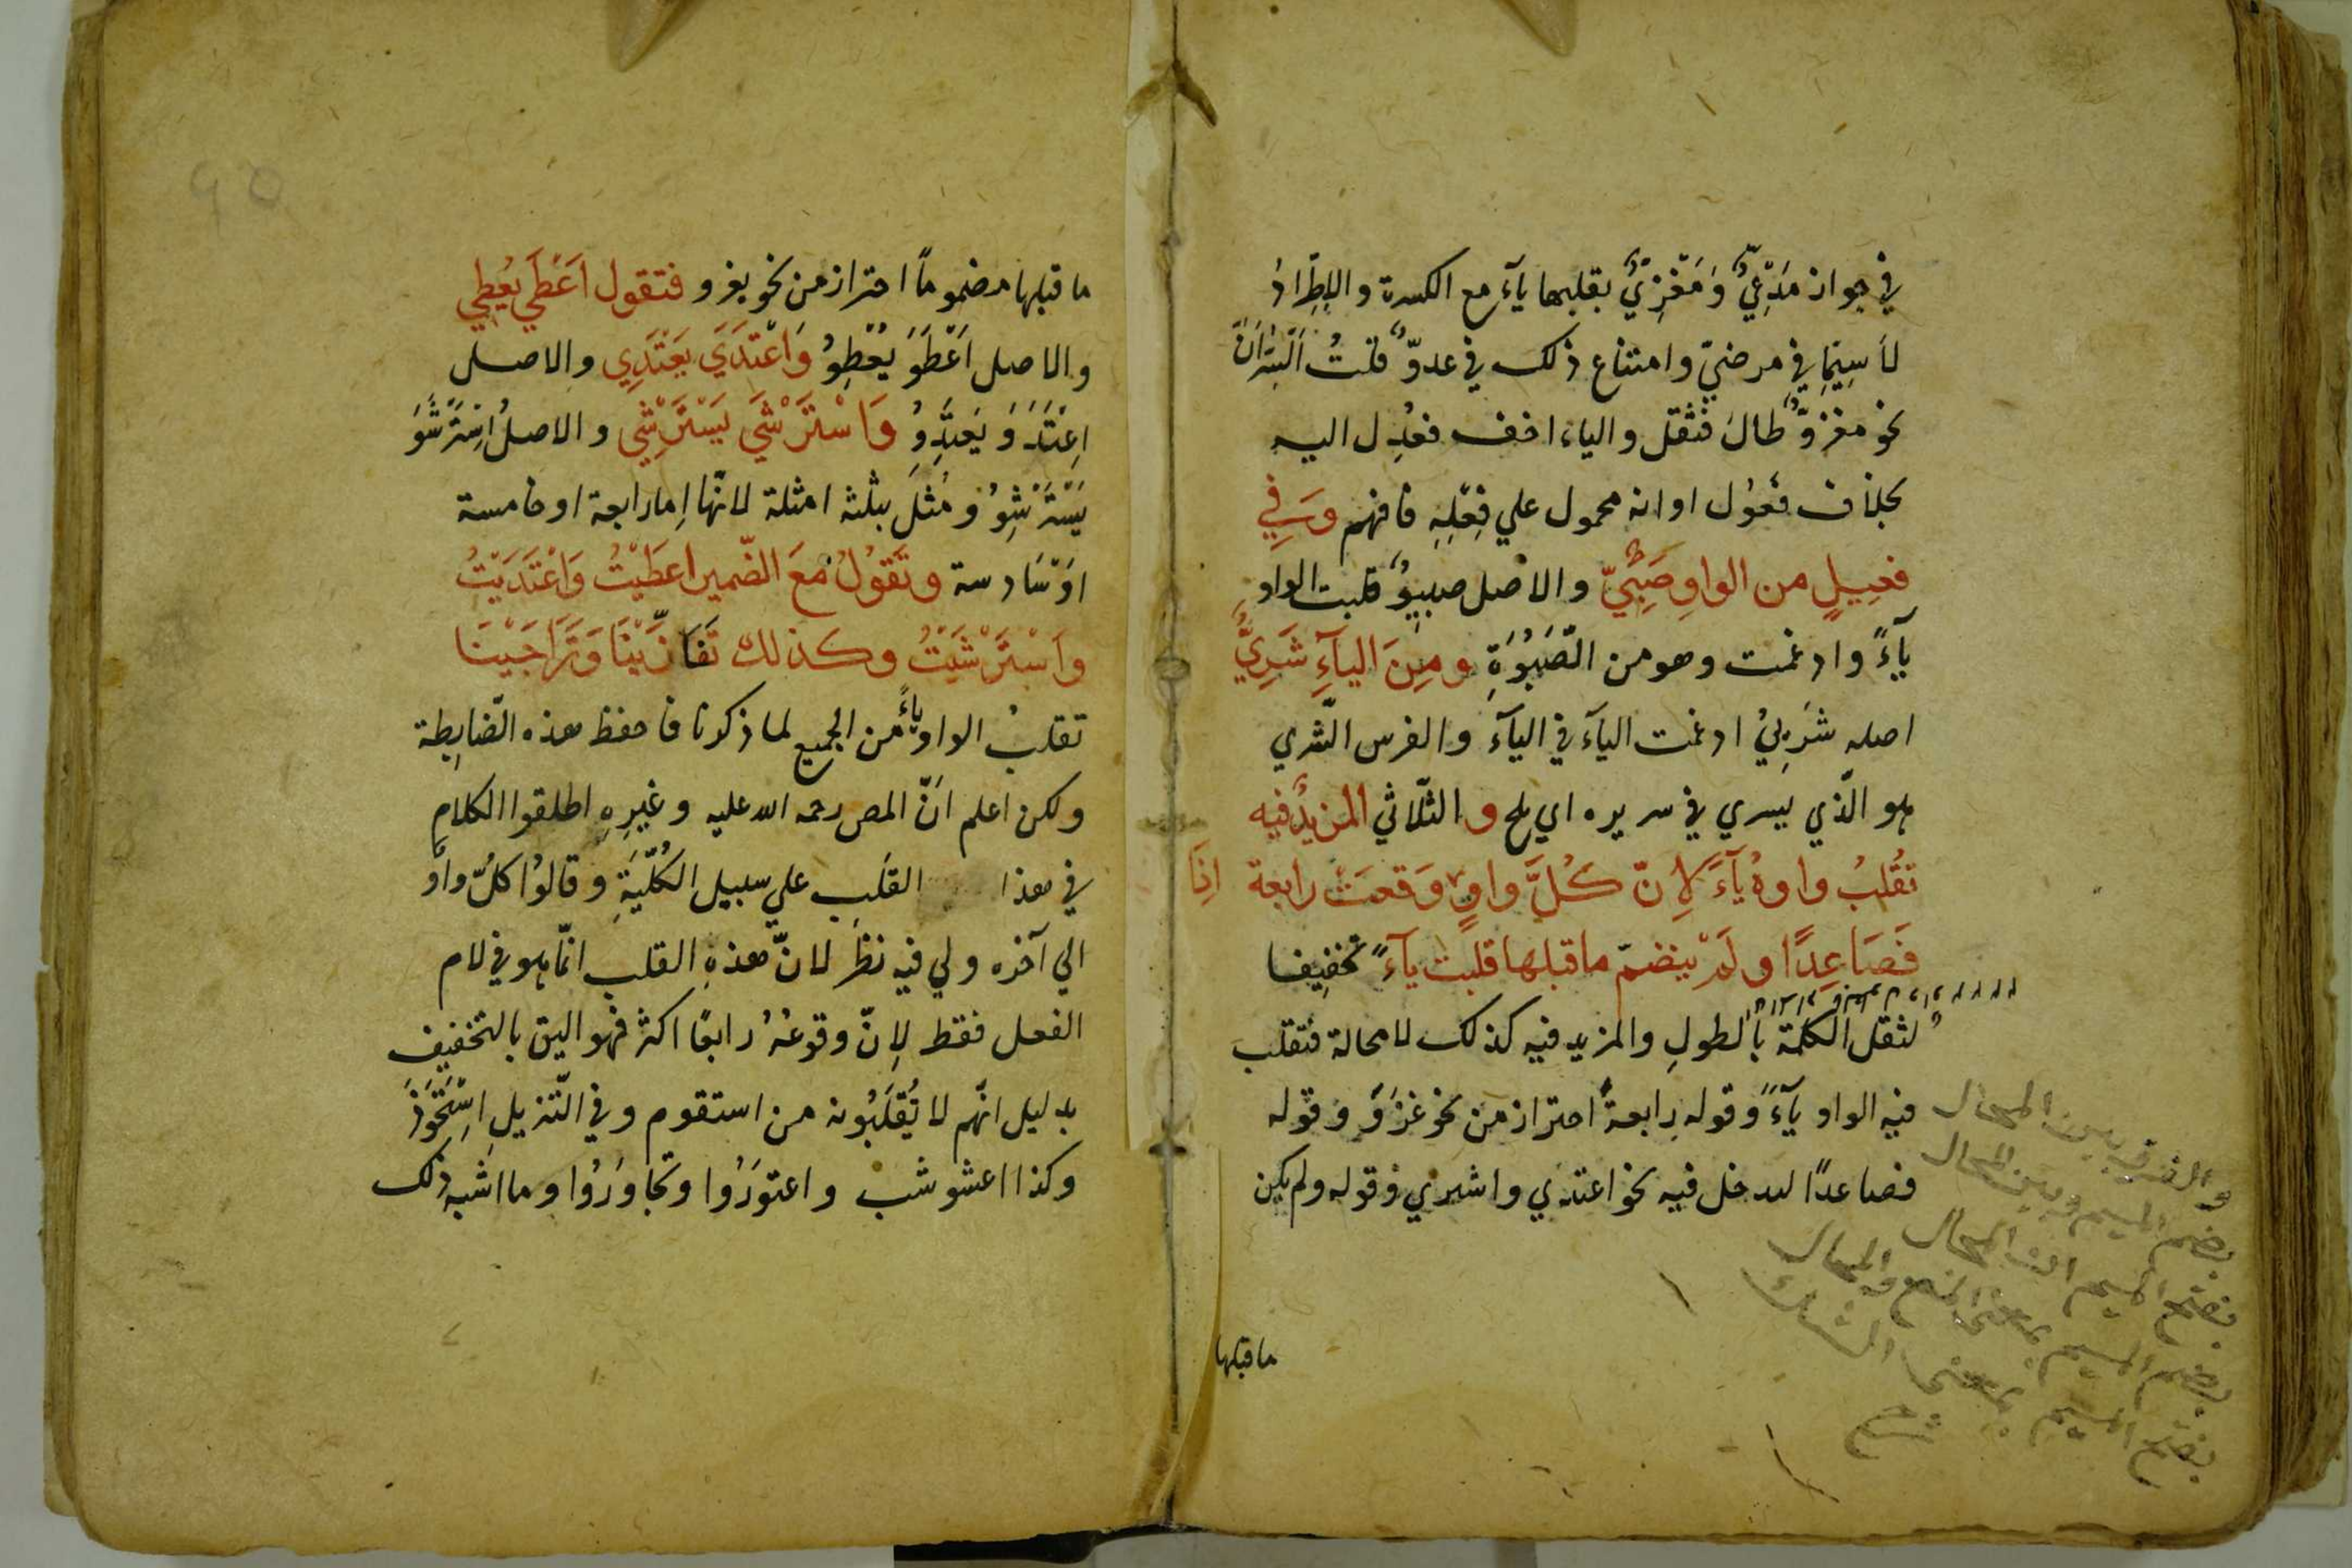 في جواز مَدْعِيٌّ وَمَغْزِيٌّ بقلبها يآءً مع الكسرة والاِطّرادُ
لاَ سِيّما في مرضيّ وامتناع ذلك في عدوّ قلتُ
نحو مغزوٌّ طالَ فثقل والياء اخف فعُدِل اليه
بخلاف فعُول او انه محمول علي فِعْلِهِ فافهم وَفِي
فعِيلٍ من الواوِ صَبِيٌّ والاصل صبيوٌ قلبت الواو
يآءً وادغمت وهو من الصَّبْوَةِ ومِنَ اليآءِ شَرِيٌّ
اصله شَرِييٌ ادغمت اليآء في اليآء والفرس الشّري
هو الّذي يسري في سريره اي يلح والثّلاثي المزيدُ فيه
تُقْلَبُ واوهُ يآءً لِاَنّ كُلَّ واوٍ وَقعَتْ رابعة
فَصَاعِدًا ولَمْ ينضمّ ما قبلها قلبت يآءً تخفِيفا
لثقل الكلمة بالطولِ والمزيد فيه كذلك لا محالة فتقلب
فيه الواو يآءً وقوله رابعةً احتراز من نحو غَزَوَ وقوله
فصاعدًا ليدخل فيه نحو اعتدي واشتري وقوله ولم يكن
والفرق بين المحال
بضم الميم وبين المحال
بفتح الميم ان المحال
بضم الميم بمعني المنع والمحال
بفتح الميم بمعني الشك
شرح
ما قبلها
٩٥
ما قبلها مضمومًا احتراز من نحو يغزو فتقول اَعْطَي يُعْطِي
والاصل اَعْطَوَ يُعْطِوُ وَاعْتَدَي يَعْتَدِي والاصل
اِعْتَدَوَ يَعْتَدِوُ وَاسْتَرْشَي يَسْتَرْشِي والاصلُ اِسْتَرْشَوَ
يَسْتَرْشِوُ ومُثِّلَ بثلثة امثلة لانّها اِما رابعة او خامسة
اوْ سَادسة وتَقُولُ مَعَ الضّميرِ اعطَيْتُ وَاعْتَدَيْتُ
وَاسْتَرْشَيْتُ وكذلك تَغَازَيْنَا وَتَرَاجَيْنَا
تقلبُ الواو ياءً من الجميع لما ذكرنا فاحفظ هذه الضّابِطة
ولكن اعلم انّ المص رحمه الله عليه وغيرِهِ اطلقوا الكلامِ
في هذا القَلبِ علي سبيل الكُلّيَةِ وقالوُا كلّ واو
الي آخره ولي فيه نظر لانّ هذهِ القلب انّما هو في لام
الفعل فقط لِانّ وقوعَهُ رابعًا اكثر فهو اليق بالتخفيف
بدليل انّهم لا يُقْلَبُونه من استقوم وفي التّنزيلِ اِسْتَحْوَذَ
وكذا اعشوشب واعتورُوا وتجاورُوا وما اشبه ذلك